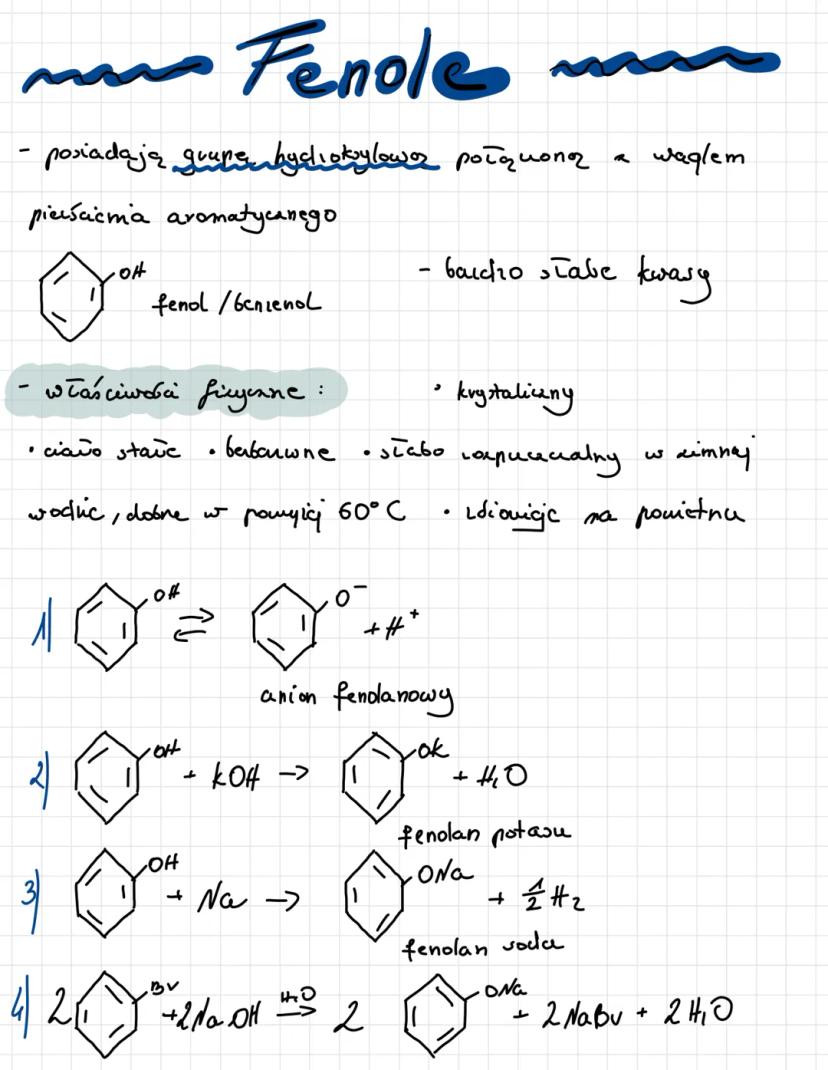 Fenole
- posiadają grupę hydroksylową połączoną z węglem
pierścienia aromatycznego
OH
fenol / benzenol
- bardzo słabe kwasy
- właściwości fizyczne :
• krystaliczny
• ciało stałe • bezbarwne • słabo rozpuszczalny w zimnej
wodzie, dobrze w powyżej 60°C • różowieje na powietrzu
1) OH ⇌ O⁻ + H⁺
anion fenolanowy
2) OH + KOH → OK + H₂O
fenolan potasu
3) OH + Na → ONa + 1/2 H₂
fenolan sodu
4) 2 Br + 2NaOH H₂O → 2 ONa + 2NaBr + 2H₂O